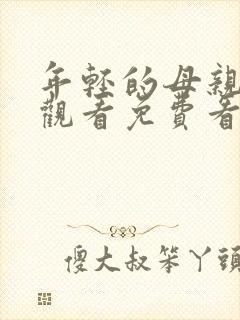 年轻的母親
觀看免費看
傻大叔笨丫頭